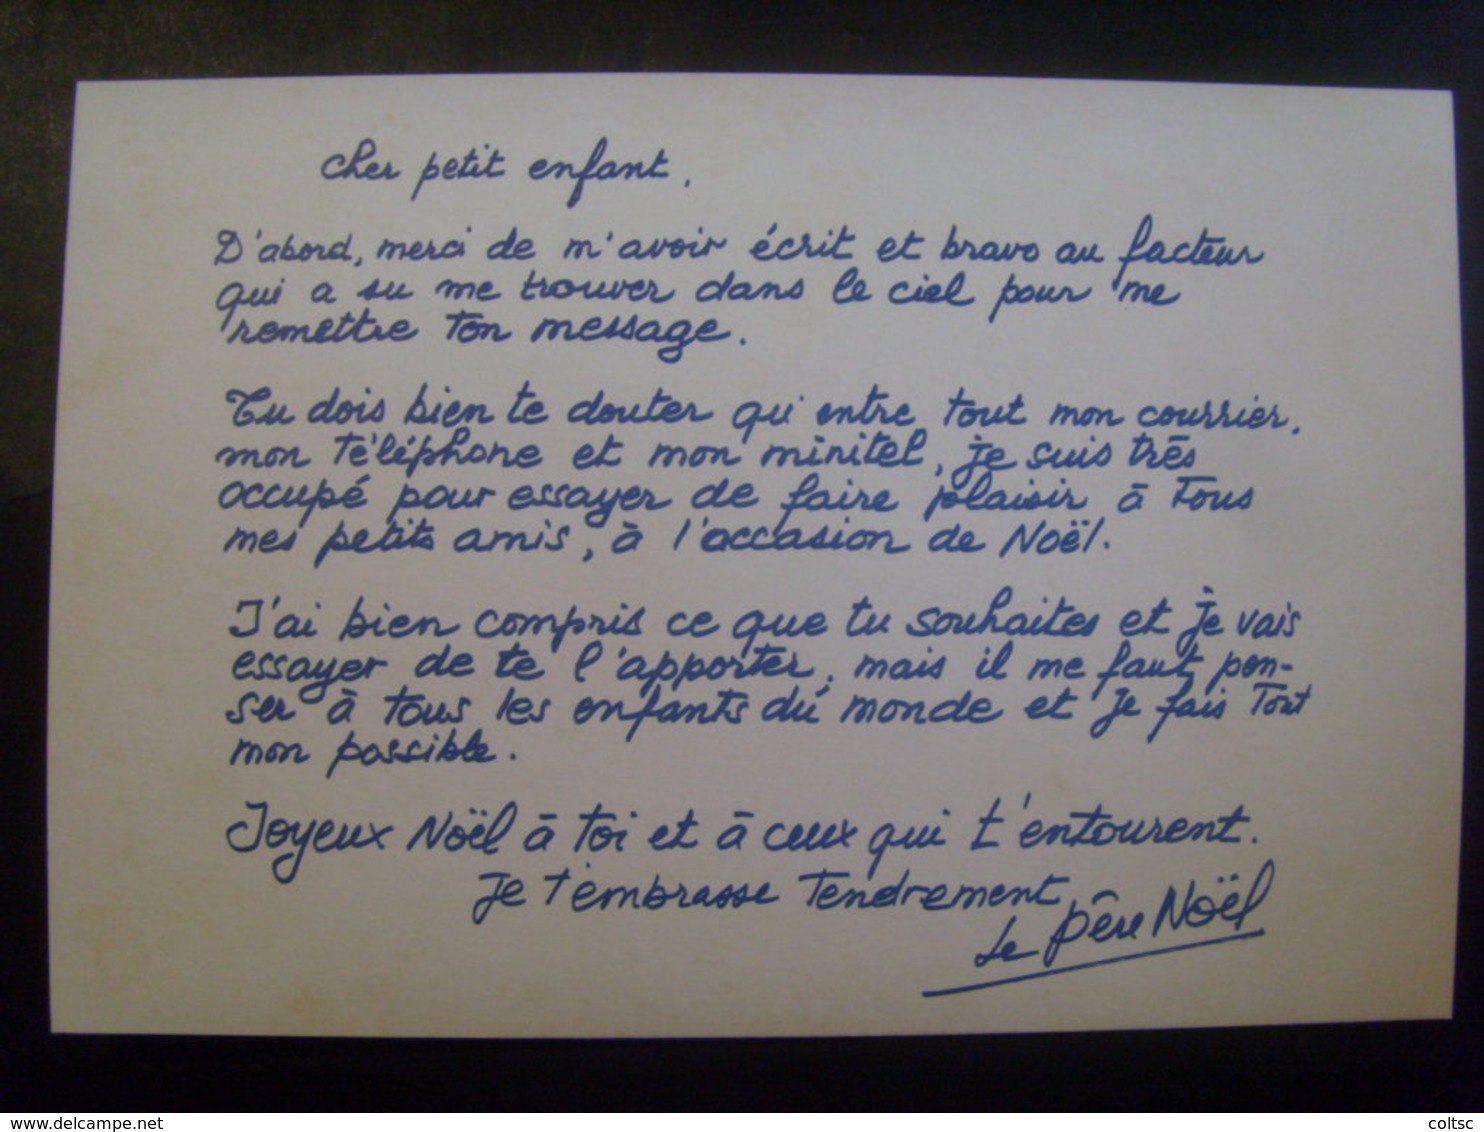 Cher petit enfant,
D'abord, merci de m'avoir écrit et bravo au facteur
qui a su me trouver dans le ciel pour me
remettre ton message.
Tu dois bien te douter qu'entre tout mon courrier,
mon téléphone et mon minitel, je suis très
occupé pour essayer de faire plaisir à tous
mes petits amis, à l'occasion de Noël.
J'ai bien compris ce que tu souhaites et je vais
essayer de te l'apporter, mais il me faut pen-
ser à tous les enfants du monde et je fais tout
mon possible.
Joyeux Noël à toi et à ceux qui t'entourent.
Je t'embrasse tendrement,
Le Père Noël
delcampe.net
coltsc